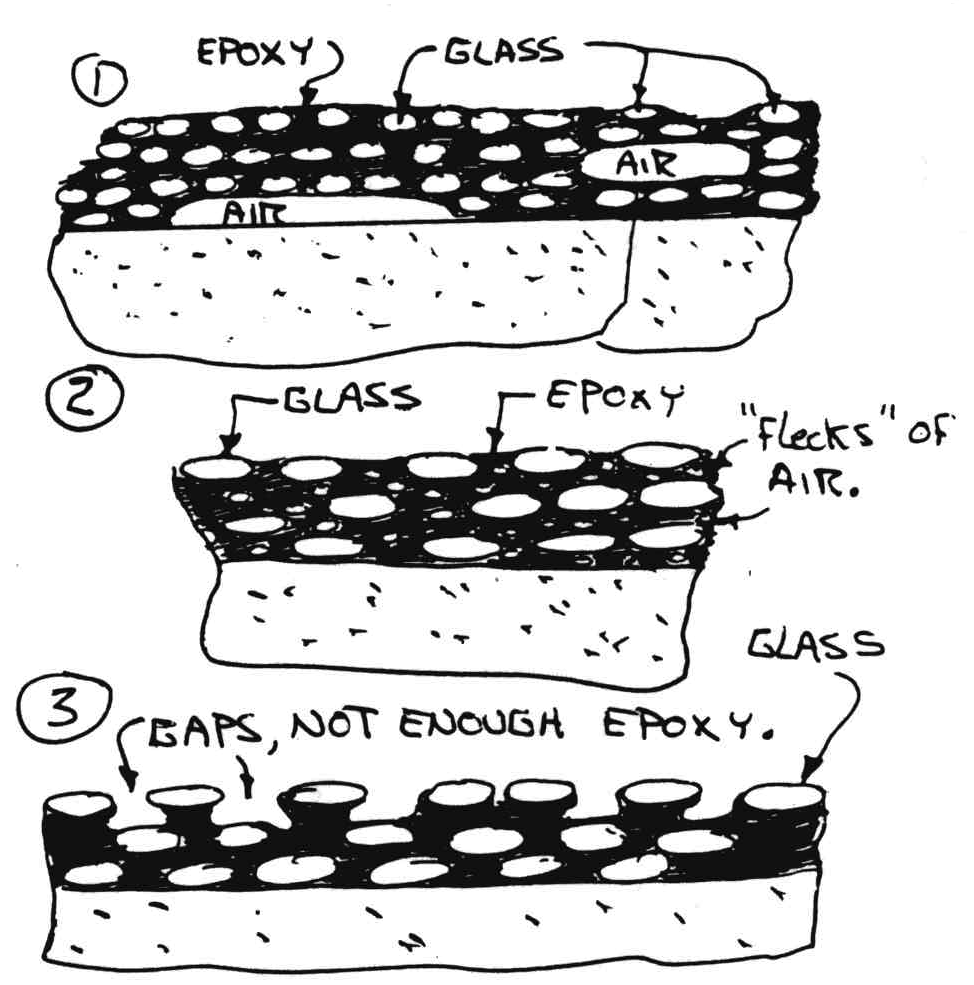 ① EPOXY GLASS
AIR
AIR
② GLASS EPOXY "Flecks" OF
AIR.
GLASS
③ GAPS, NOT ENOUGH EPOXY.